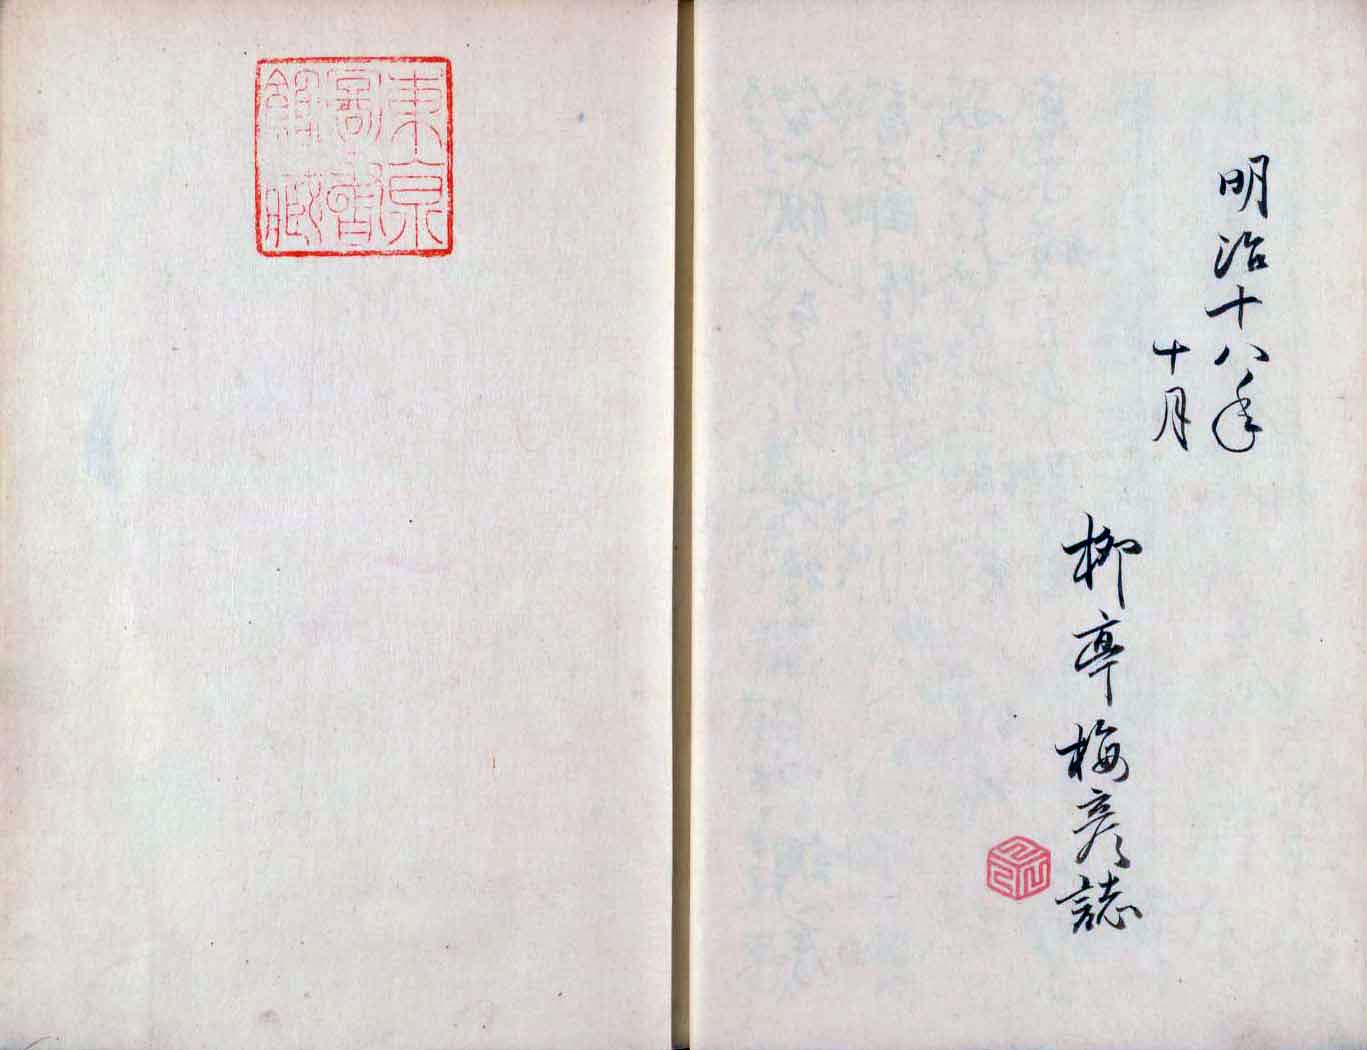 明治十八年
十月
柳亭梅彦誌
東京
圖書
館藏